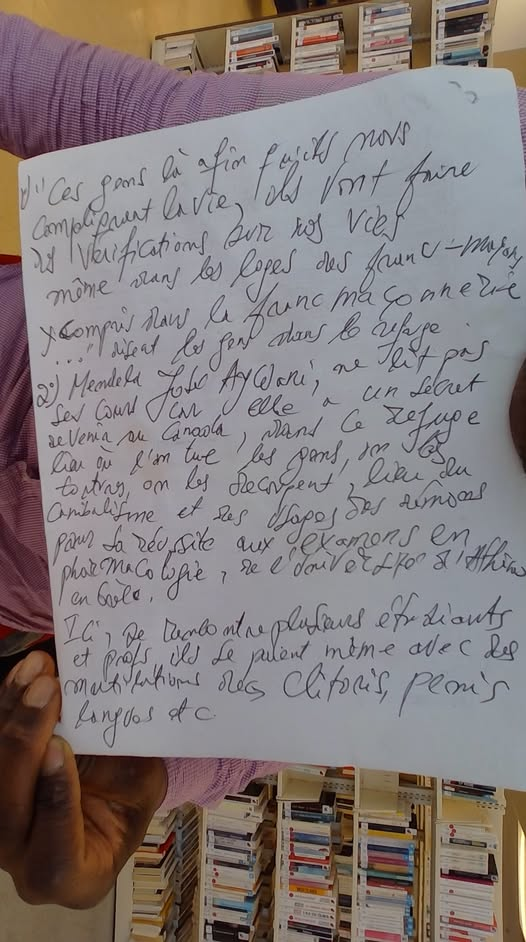 1) "Ces gens là afin qu'ils nous
compliquent la vie, ils vont faire
des vérifications sur nos vies
même dans les loges des franc-maçons
y compris dans la franc maçonnerie
..." disent les gens dans le refuge.
2°) Mendela José Aydani, ne lit pas
ses cours car elle a un secret
devenir au Canada, dans ce refuge
lieu où l'on tue les gens, on les
on les decoupent, lieu du
Canibalisme et des des démons
pour sa réussite aux examens en
pharmacologie, de l'université d'Athènes
en
Ici, se rencontre plusieurs étudiants
et profs ils se même avec des
mutilations des Clitoris, penis
langues etc